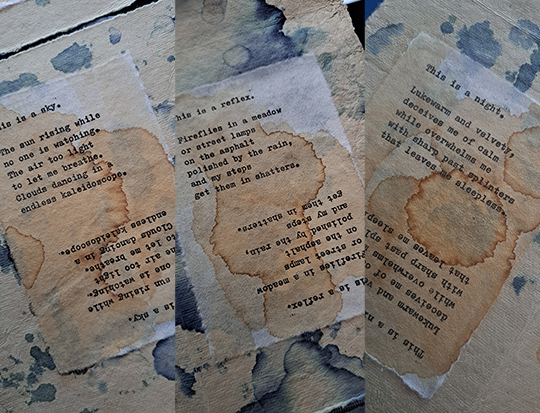 his is a sky.
The sun rising while
no one is watching.
The air too light
to let me breathe.
Clouds dancing in a
endless kaleidoscope.
s is a sky.
sun rising while
one is watching.
air too light
to let me breathe.
Clouds dancing in a
endless kaleidoscope.
his is a reflex.
Fireflies in a meadow
or street lamps
on the asphalt
polished by the rain,
and my steps
get them in shatters.
This is a reflex.
Fireflies in a meadow
or street lamps
on the asphalt
polished by the rain,
and my steps
get them in shatters.
This is a night.
Lukewarm and velvety,
deceives me of calm
while overwhelms me
with sharp past splinters
that leaves me sleepless.
This is a n
Lukewarm and
deceives me of
while overwhelms
with sharp past spl
that leaves me sleep